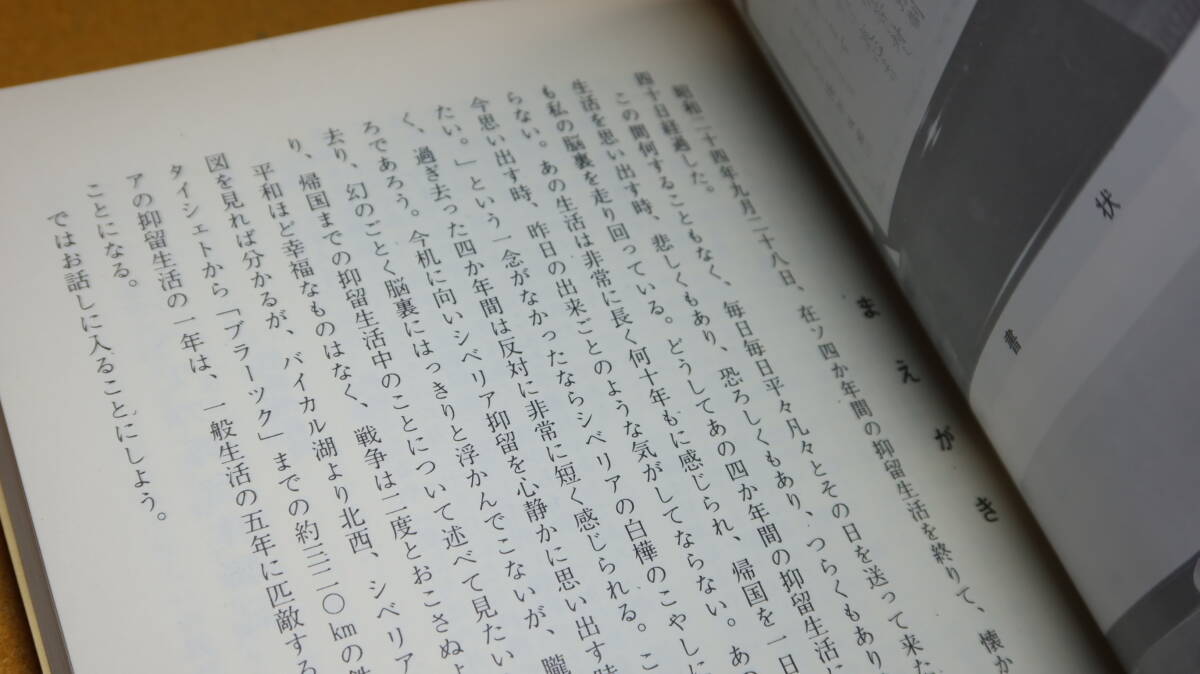 状
書
まえがき
昭和二十四年九月二十八日、在ソ四か年間の抑留生活を終りて、懐か
四十日経過した。
この間何することもなく、毎日毎日平々凡々とその日を送って来た
生活を思い出す時、悲しくもあり、恐ろしくもあり、つらくもあり
も私の脳裏を走り回っている。どうしてあの四か年間の抑留生活に
らない。あの生活は非常に長く何十年もに感じられ、帰国を一日
今思い出す時、昨日の出来ごとのような気がしてならない。あの
たい。」という一念がなかったならシベリアの白樺のこやしに
く、過ぎ去った四か年間は反対に非常に短く感じられる。こ
ろであろう。今机に向いシベリア抑留を心静かに思い出す時
去り、幻のごとく脳裏にはっきりと浮かんでこないが、朧
り、帰国までの抑留生活中のことについて述べて見たい
平和ほど幸福なものはなく、戦争は二度とおこさぬよ
図を見れば分かるが、バイカル湖より北西、シベリア
タイシェトから「ブラーツク」までの約三二〇㎞の鉄
アの抑留生活の一年は、一般生活の五年に匹敵する
ことになる。
ではお話しに入ることにしよう。